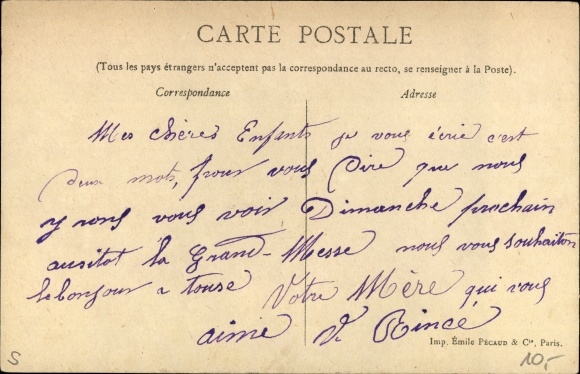 CARTE POSTALE
(Tous les pays étrangers n'acceptent pas la correspondance au recto, se renseigner à la Poste).
Correspondance
Adresse
Mes chères Enfants je vous écrie c'est
deux mots, pour vous Dire que nous
y rons vous voir Dimanche prochain
ausitot la Grand-Messe nous vous souhaiton
le bonjour a touse Votre Mère qui vous
aime V. Rincé
Imp. Émile PÉCAUD & Cie, Paris.
S
10,-